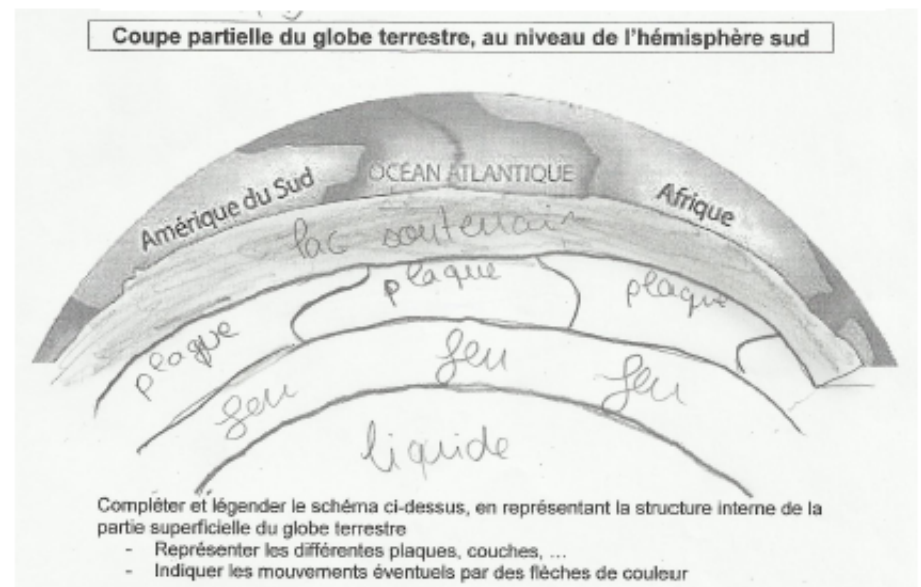 Coupe partielle du globe terrestre, au niveau de l'hémisphère sud
OCÉAN ATLANTIQUE
Amérique du Sud
Afrique
lac souterrain
plaque
plaque
plaque
feu
feu
feu
liquide
Compléter et légender le schéma ci-dessus, en représentant la structure interne de la
partie superficielle du globe terrestre
- Représenter les différentes plaques, couches, ...
- Indiquer les mouvements éventuels par des flèches de couleur